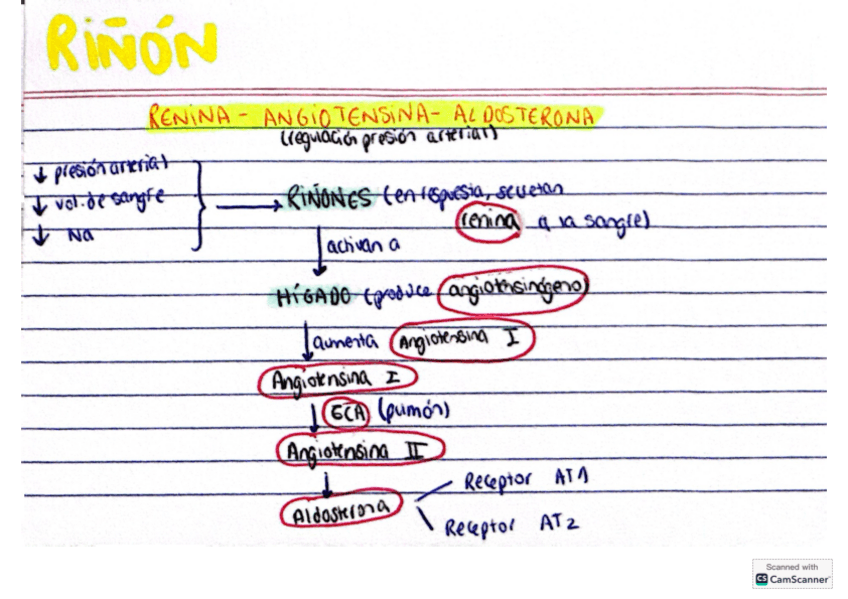 RIÑÓN
RENINA - ANGIOTENSINA - ALDOSTERONA
(regulación presión arterial)
↓ presión arterial
↓ vol. de sangre
↓ Na
RIÑONES (en respuesta, secretan
renina a la sangre)
activan a
HÍGADO (produce angiotensinógeno)
aumenta Angiotensina I
Angiotensina I
ECA (pumón)
Angiotensina II
Aldosterona
Receptor AT1
Receptor AT2
Scanned with
CS CamScanner